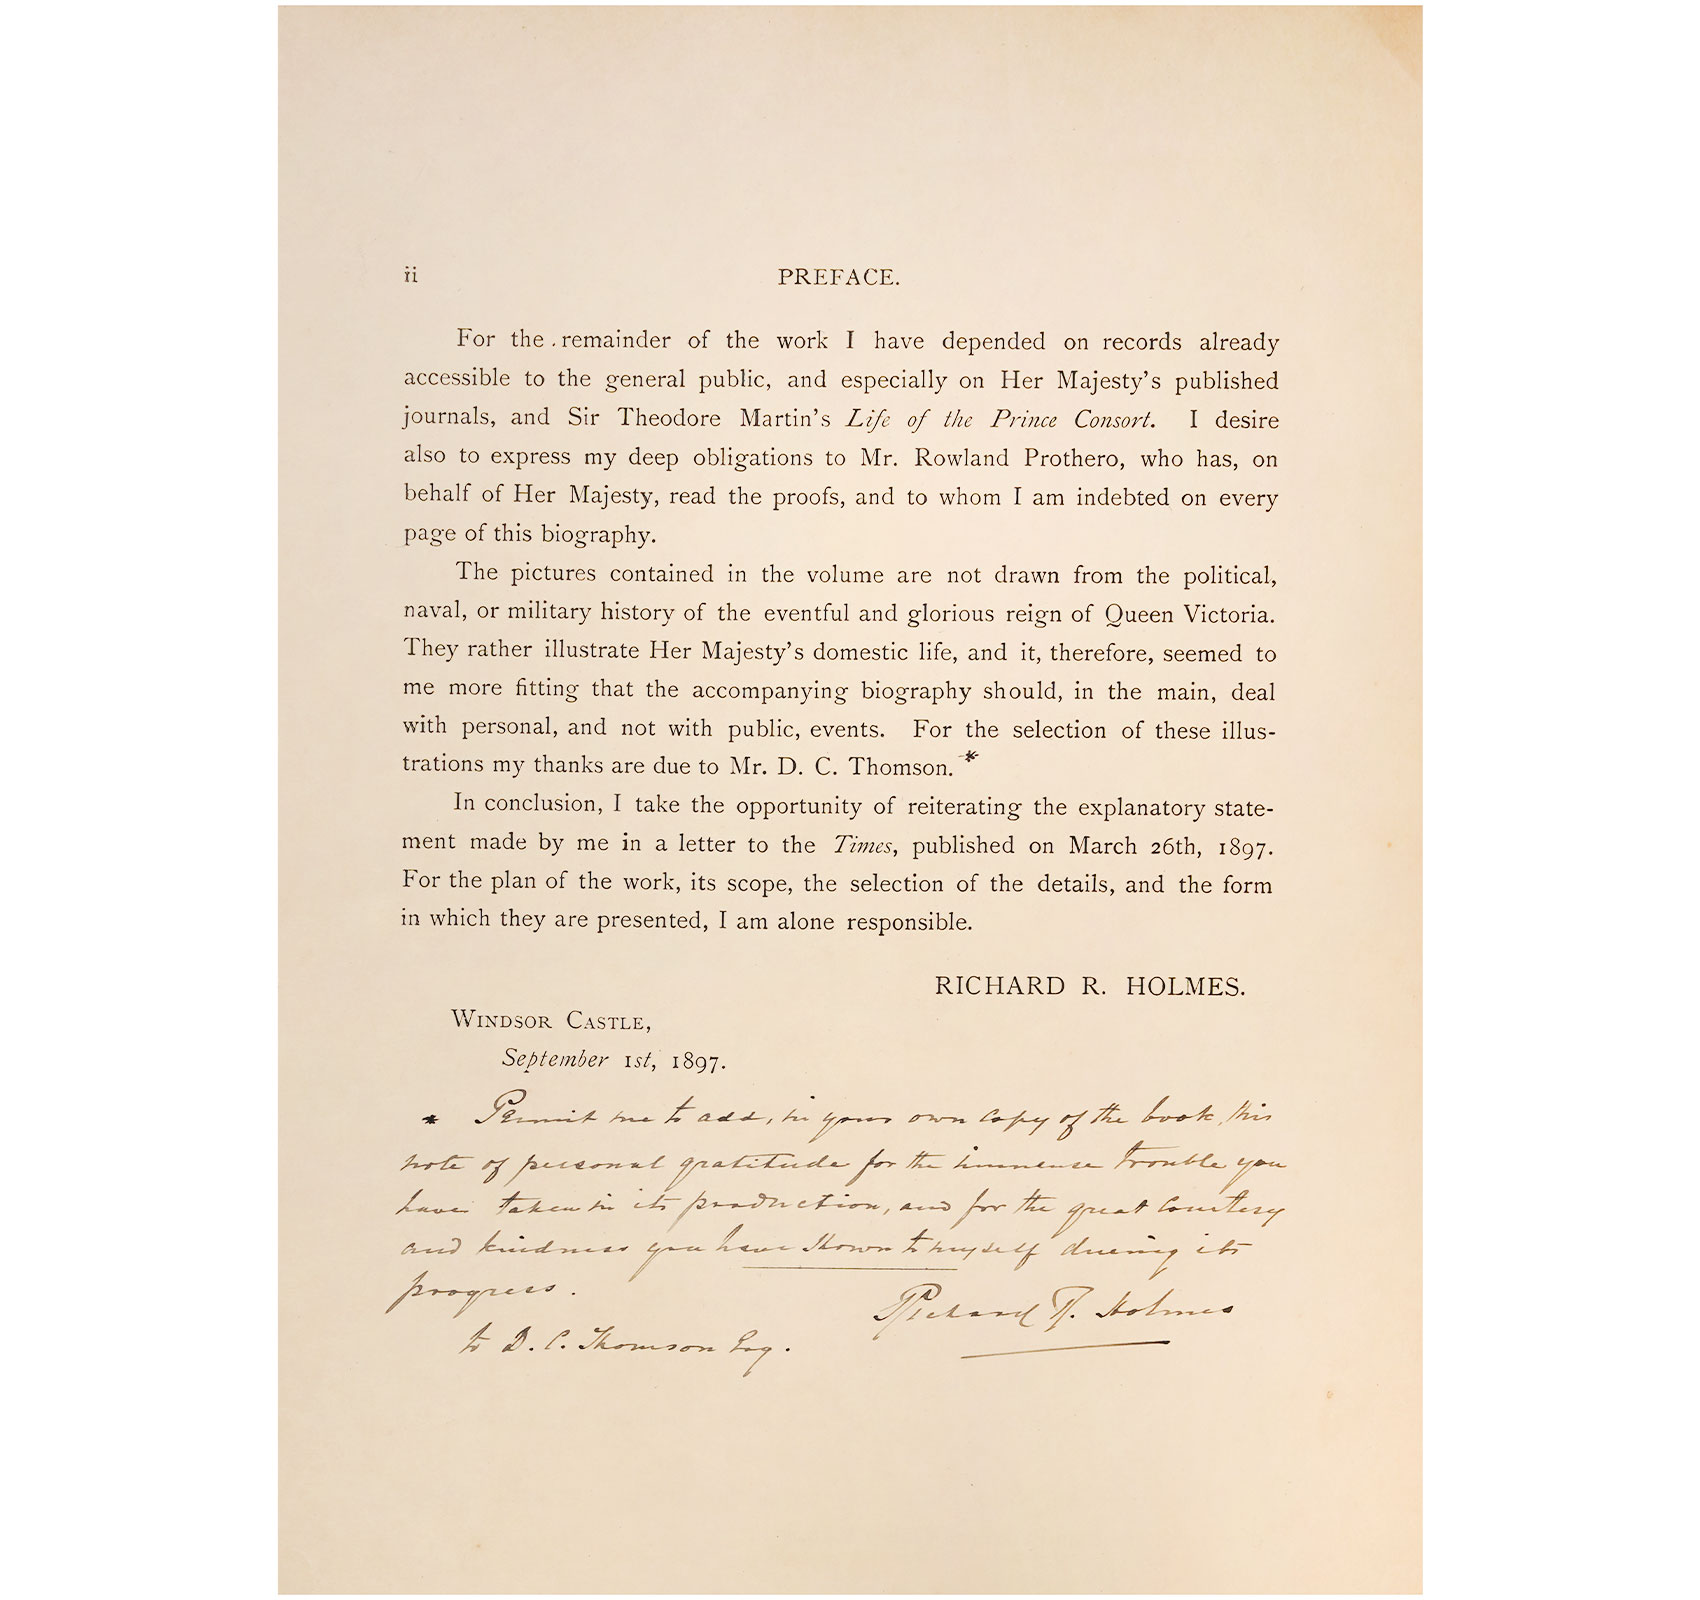 ii PREFACE.
For the remainder of the work I have depended on records already
accessible to the general public, and especially on Her Majesty's published
journals, and Sir Theodore Martin's Life of the Prince Consort. I desire
also to express my deep obligations to Mr. Rowland Prothero, who has, on
behalf of Her Majesty, read the proofs, and to whom I am indebted on every
page of this biography.
The pictures contained in the volume are not drawn from the political,
naval, or military history of the eventful and glorious reign of Queen Victoria.
They rather illustrate Her Majesty's domestic life, and it, therefore, seemed to
me more fitting that the accompanying biography should, in the main, deal
with personal, and not with public, events. For the selection of these illus-
trations my thanks are due to Mr. D. C. Thomson. *
In conclusion, I take the opportunity of reiterating the explanatory state-
ment made by me in a letter to the Times, published on March 26th, 1897.
For the plan of the work, its scope, the selection of the details, and the form
in which they are presented, I am alone responsible.
RICHARD R. HOLMES.
WINDSOR CASTLE,
September 1st, 1897.
* Permit me to add, in your own copy of the book, this
note of personal gratitude for the immense trouble you
have taken in its production, and for the great courtesy
and kindness you have shown to myself during its
progress.
Richard R. Holmes
to D. C. Thomson Esq.